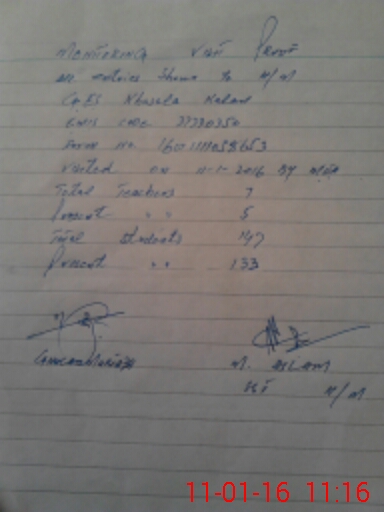 MONITORING VISIT Proof
All entries shown to H/M
GGES Khusala Kalan
EMIS CODE 37330350
Form No. 1601111058653
Visited on 11-1-2016 By MEA
Total Teachers 7
Present " " 5
Total Students 147
Present " " 133
M. ASLAM
H/M
11-01-16 11:16